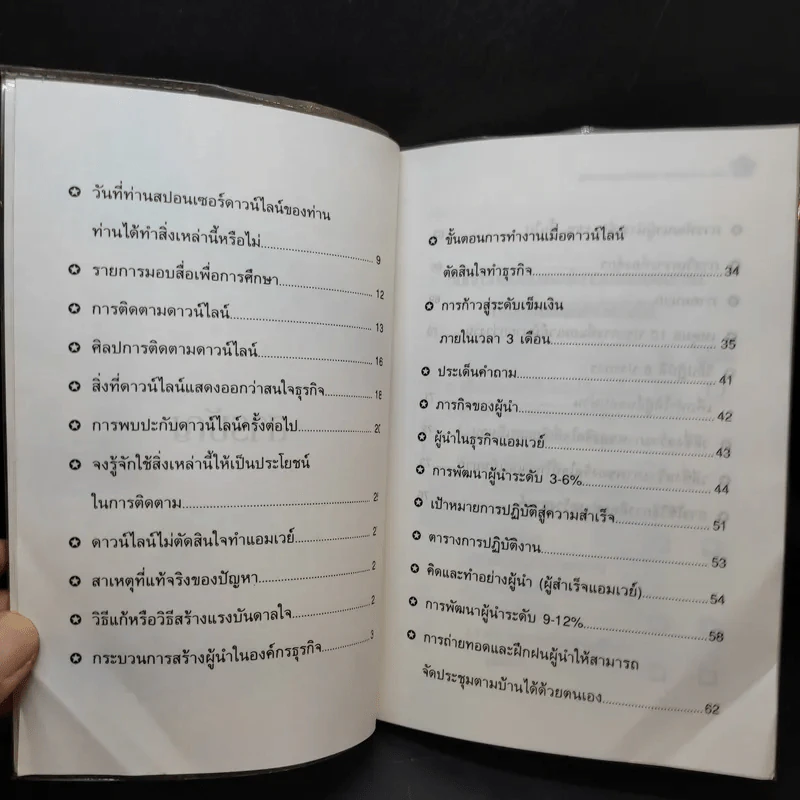 ✪ วันที่ท่านสปอนเซอร์ดาวน์ไลน์ของท่าน
ท่านได้ทำสิ่งเหล่านี้หรือไม่ 9
✪ รายการมอบสื่อเพื่อการศึกษา 12
✪ การติดตามดาวน์ไลน์ 13
✪ ศิลปการติดตามดาวน์ไลน์ 16
✪ สิ่งที่ดาวน์ไลน์แสดงออกว่าสนใจธุรกิจ 18
✪ การพบปะกับดาวน์ไลน์ครั้งต่อไป
✪ จงรู้จักใช้สิ่งเหล่านี้ให้เป็นประโยชน์
ในการติดตาม
✪ ดาวน์ไลน์ไม่ตัดสินใจทำแอมเวย์
✪ สาเหตุที่แท้จริงของปัญหา
✪ วิธีแก้หรือวิธีสร้างแรงบันดาลใจ
✪ กระบวนการสร้างผู้นำในองค์กรธุรกิจ
✪ ขั้นตอนการทำงานเมื่อดาวน์ไลน์
ตัดสินใจทำธุรกิจ 34
✪ การก้าวสู่ระดับเข็มเงิน
ภายในเวลา 3 เดือน 35
✪ ประเด็นคำถาม 41
✪ ภารกิจของผู้นำ 42
✪ ผู้นำในธุรกิจแอมเวย์ 43
✪ การพัฒนาผู้นำระดับ 3-6% 44
✪ เป้าหมายการปฏิบัติสู่ความสำเร็จ 51
✪ ตารางการปฏิบัติงาน 53
✪ คิดและทำอย่างผู้นำ (ผู้สำเร็จแอมเวย์) 54
✪ การพัฒนาผู้นำระดับ 9-12% 58
✪ การถ่ายทอดและฝึกฝนผู้นำให้สามารถ
จัดประชุมตามบ้านได้ด้วยตนเอง 62